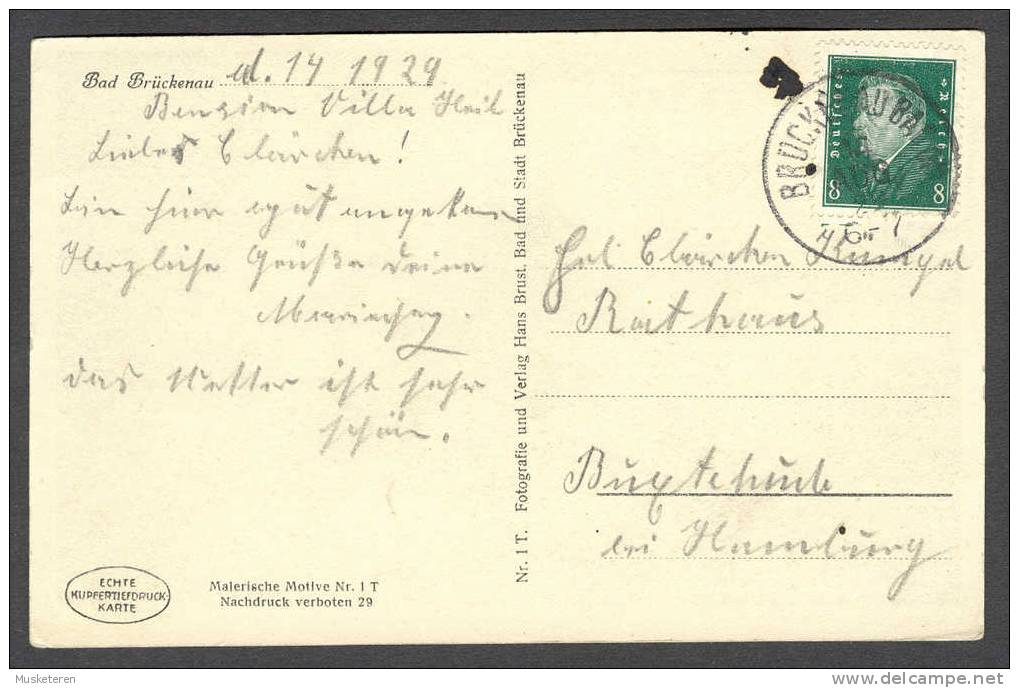 Bad Brückenau d. 14 1929
Pension Villa Heil
Liebes Clärchen!
Bin hier gut angekom
Herzliche Grüße Deine
das Wetter ist sehr
schön.
Nr. 1 T. Fotografie und Verlag Hans Brust, Bad und Stadt Brückenau
Deutsches Reich
8 8
BRÜCKENAU BAD
Frl Clärchen
Rathaus
Buxtehude
bei Hamburg
ECHTE
KUPFERTIEFDRUCK-
KARTE
Malerische Motive Nr. 1 T
Nachdruck verboten 29
Musketeren
delcampe.net